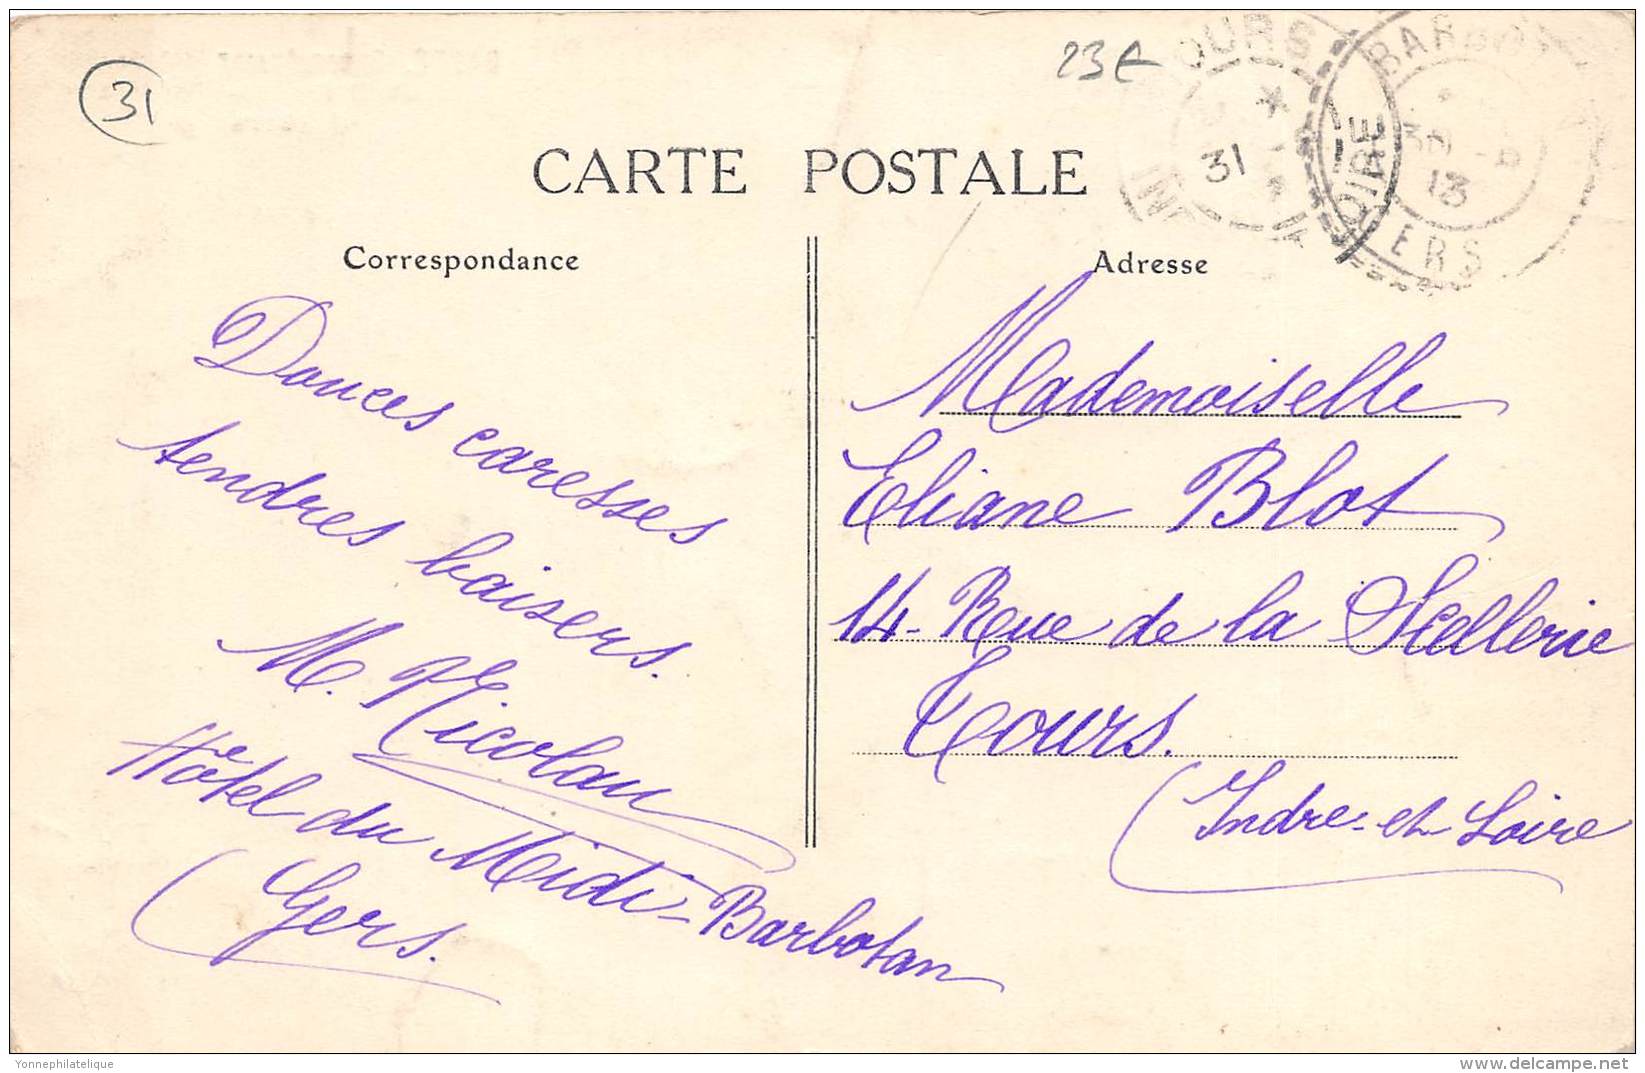 31
23€
CARTE POSTALE
Correspondance
Adresse
OURS
*
31
LOIRE
BARBO
30 -8
13
GERS
Douces caresses
tendres baisers.
M. Nicolau
Hôtel du Midi - Barbotan
(Gers.
Mademoiselle
Eliane Blot
14 - Rue de la Scellerie
Tours.
(Indre-et-Loire
Yonnephilatelique
delcampe.net